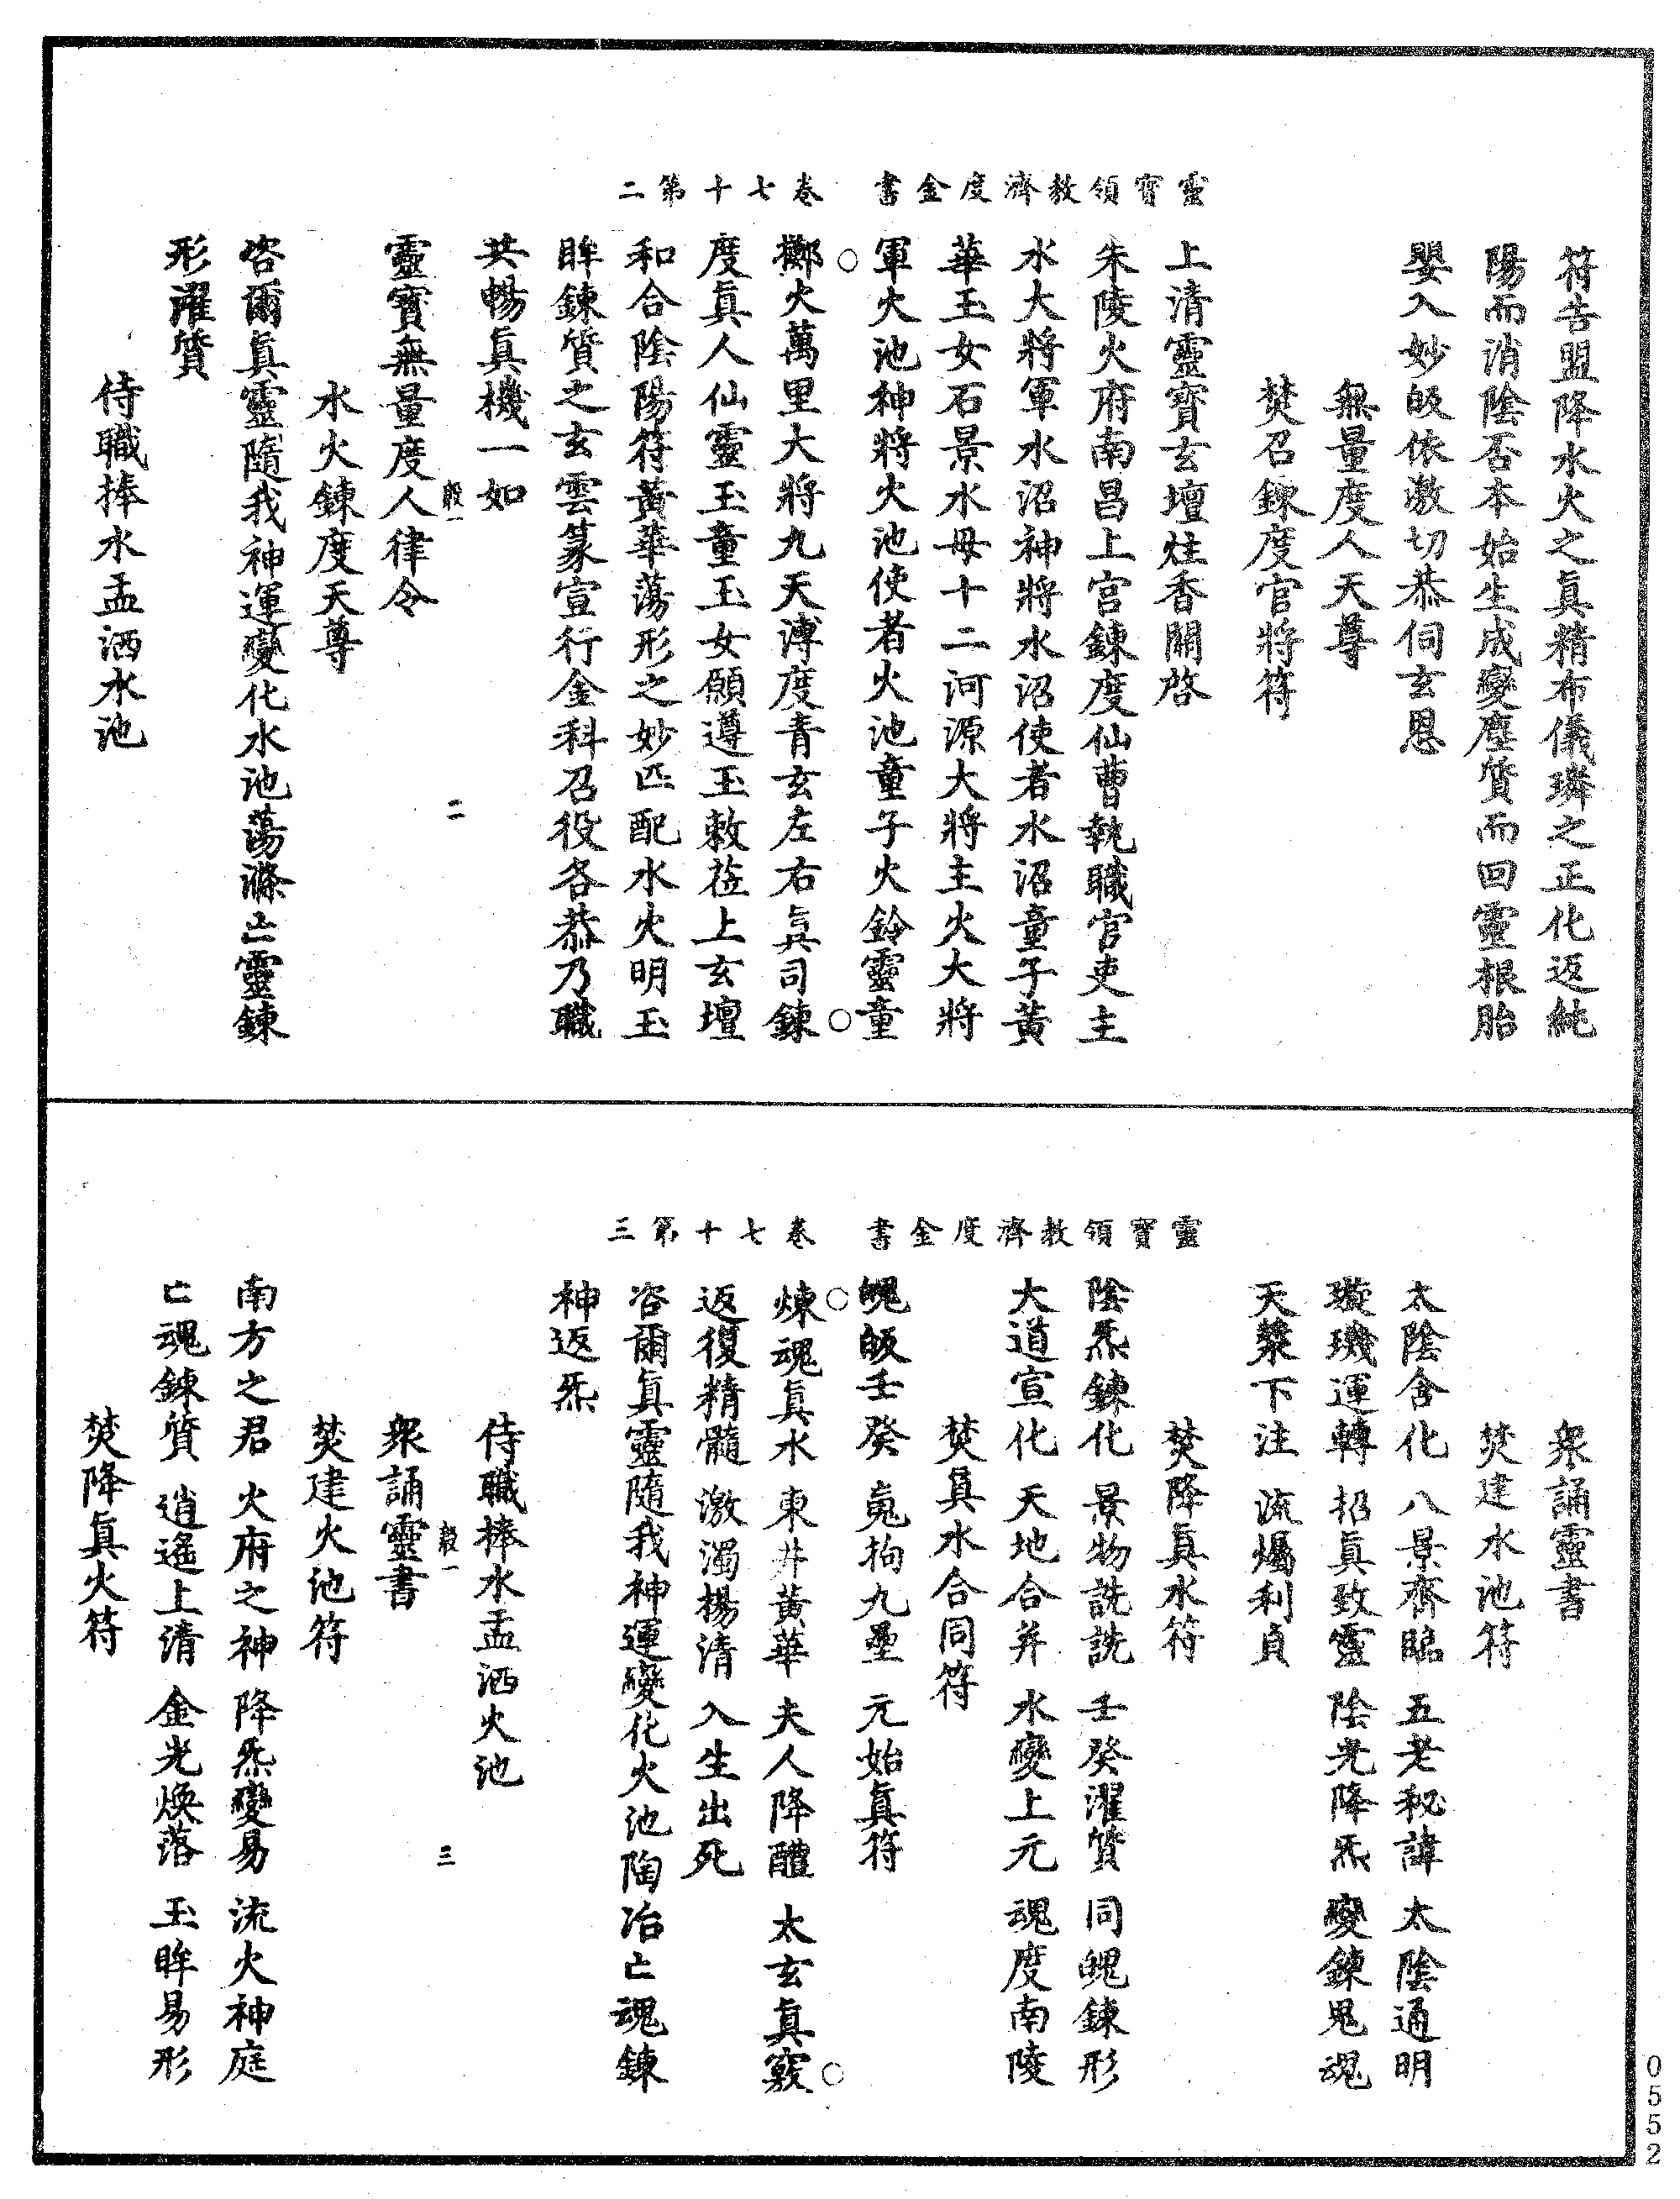 靈寶領教濟度金書 卷七十第二
符告盟降水火之真精布儀璘之正化返純
陽而消陰否本始生成變塵質而回靈根胎
嬰入妙皈依激切恭伺玄恩
無量度人天尊
焚召鍊度官將符
上清靈寶玄壇炷香關啓
朱陵火府南昌上宮鍊度仙曹執職官吏主
水大將軍水沼神將水沼使者水沼童子黃
華玉女石景水母十二河源大將主火大將
軍火池神將火池使者火池童子火鈴靈童
擲火萬里大將九天溥度青玄左右真司鍊
度真人仙靈玉童玉女願遵玉敕蒞上玄壇
和合陰陽符黃華蕩形之妙匹配水火明玉
眸鍊質之玄雲篆宣行金科召役各恭乃職
共暢真機一如
穀一
二
靈寶無量度人律令
水火鍊度天尊
咨爾真靈隨我神運變化水池蕩滌亡靈鍊
形濯質
侍職捧水盂洒水池
靈寶領教濟度金書 卷七十第三
衆誦靈書
焚建水池符
太陰含化 八景齊臨 五老秘諱 太陰通明
璇璣運轉 招真致靈 陰光降炁 變鍊鬼魂
天槳下注 流爥利貞
焚降真水符
陰炁鍊化 景物詵詵 壬癸濯質 同魄鍊形
大道宣化 天地合并 水變上元 魂度南陵
焚真水合同符
魄皈壬癸 拘九壘 元始真符
煉魂真水 東井黃華 夫人降醴 太玄真竅
返復精髓 激濁揚清 入生出死
咨爾真靈隨我神運變化火池陶冶亡魂鍊
神返炁
侍職捧水盂洒火池
穀一
三
衆誦靈書
焚建火池符
南方之君 火府之神 降炁變易 流火神庭
亡魂鍊質 逍遙上清 金光煥落 玉眸易形
焚降真火符
0552